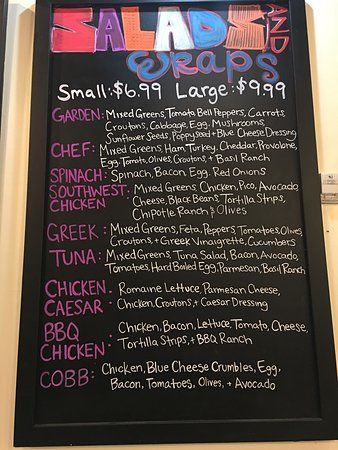 SALADS AND
Wraps
Small: $6.99 Large: $9.99
GARDEN: Mixed Greens, Tomato, Bell Peppers, Carrots,
Croutons, Cabbage, Egg, Mushrooms,
Sunflower Seeds, Poppyseed + Blue Cheese Dressing
CHEF: Mixed Greens, Ham, Turkey, Cheddar, Provolone,
Egg, Tomato, Olives, Croutons + Basil Ranch
SPINACH: Spinach, Bacon, Egg, Red Onions
SOUTHWEST CHICKEN: Mixed Greens, Chicken, Pico, Avocado,
Cheese, Black Beans, Tortilla Strips,
Chipotle Ranch & Olives
GREEK: Mixed Greens, Feta, Peppers, Tomatoes, Olives,
Croutons + Greek Vinaigrette, Cucumbers
TUNA: Mixed Greens, Tuna Salad, Bacon, Avocado,
Tomatoes, Hard Boiled Egg, Parmesan, Basil Ranch
CHICKEN CAESAR: Romaine Lettuce, Parmesan Cheese,
Chicken, Croutons, + Caesar Dressing
BBQ CHICKEN: Chicken, Bacon, Lettuce, Tomato, Cheese,
Tortilla Strips, + BBQ Ranch
COBB: Chicken, Blue Cheese Crumbles, Egg,
Bacon, Tomatoes, Olives, + Avocado